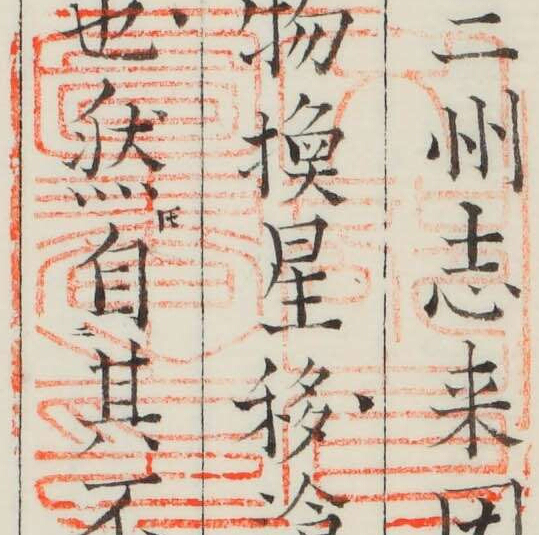 二州志来因
物換星移
也然自其不